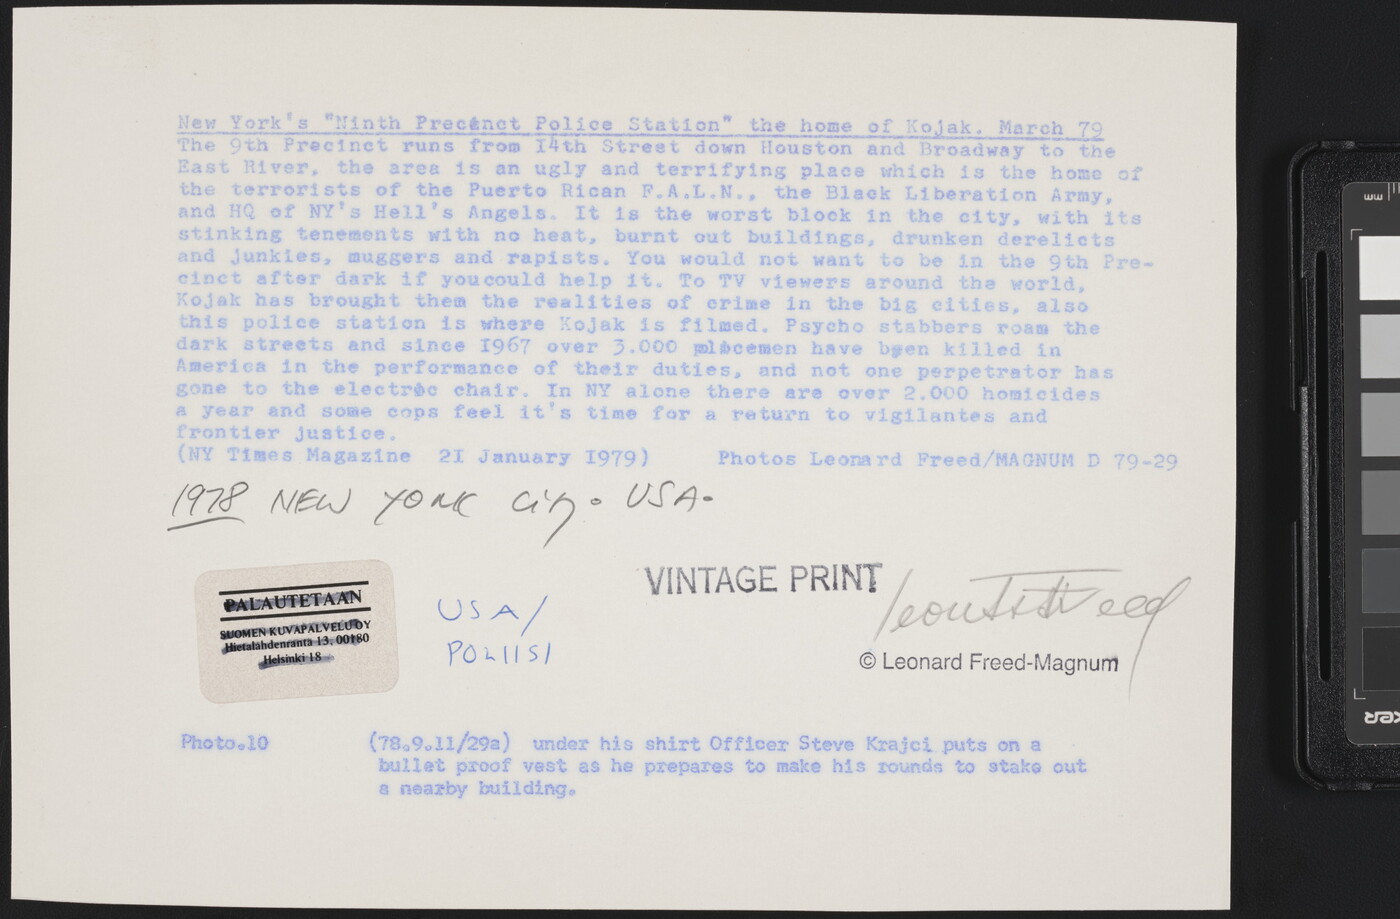 New York's "Ninth Precinct Police Station" the home of Kojak. March 79
The 9th Precinct runs from I4th Street down Houston and Broadway to the
East River, the area is an ugly and terrifying place which is the home of
the terrorists of the Puerto Rican F.A.L.N., the Black Liberation Army,
and HQ of NY's Hell's Angels. It is the worst block in the city, with its
stinking tenements with no heat, burnt out buildings, drunken derelicts
and junkies, muggers and rapists. You would not want to be in the 9th Pre-
cinct after dark if youcould help it. To TV viewers around the world,
Kojak has brought them the realities of crime in the big cities, also
this police station is where Kojak is filmed. Psycho stabbers roam the
dark streets and since I967 over 3.000 plicemen have been killed in
America in the performance of their duties, and not one perpetrator has
gone to the electric chair. In NY alone there are over 2.000 homicides
a year and some cops feel it's time for a return to vigilantes and
frontier justice.
(NY Times Magazine 2I January I979) Photos Leonard Freed/MAGNUM D 79-29
1978 NEW YORK City. USA.
PALAUTETAAN
SUOMEN KUVAPALVELU OY
Hietalahdenranta 13, 00180
Helsinki 18
USA/
POLIISI
VINTAGE PRINT
Leonard Freed
© Leonard Freed-Magnum
Photo.10 (78.9.11/29a) under his shirt Officer Steve Krajci puts on a
bullet proof vest as he prepares to make his rounds to stake out
a nearby building.
mm